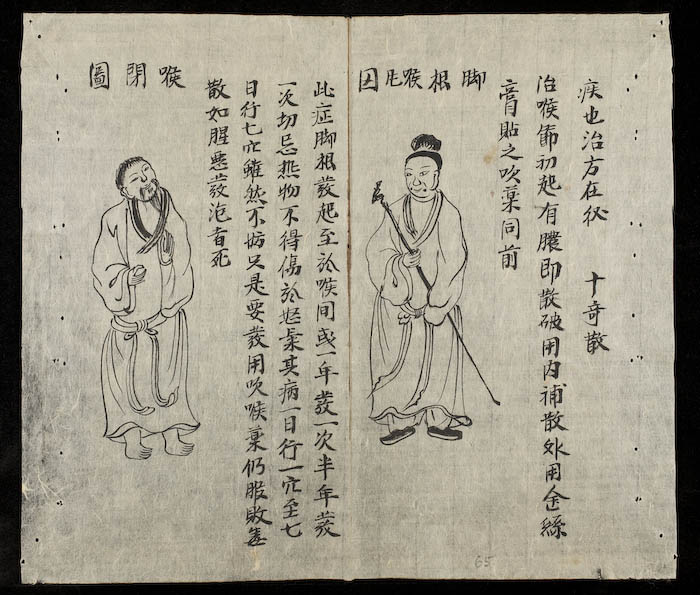 疾也治方在後 十奇散
治喉節初起有膿即散破用内補散外用金絲
膏貼之吹藥同前
脚根喉
此症脚根發起至於喉间或一年發一次半年發
一次切忌热物不得傷於怒氣其病一日行一穴至七
日行七穴雖然不妨只是要發用吹喉藥仍服敗毒
散如腥惡發泡者死
喉閉圖
65